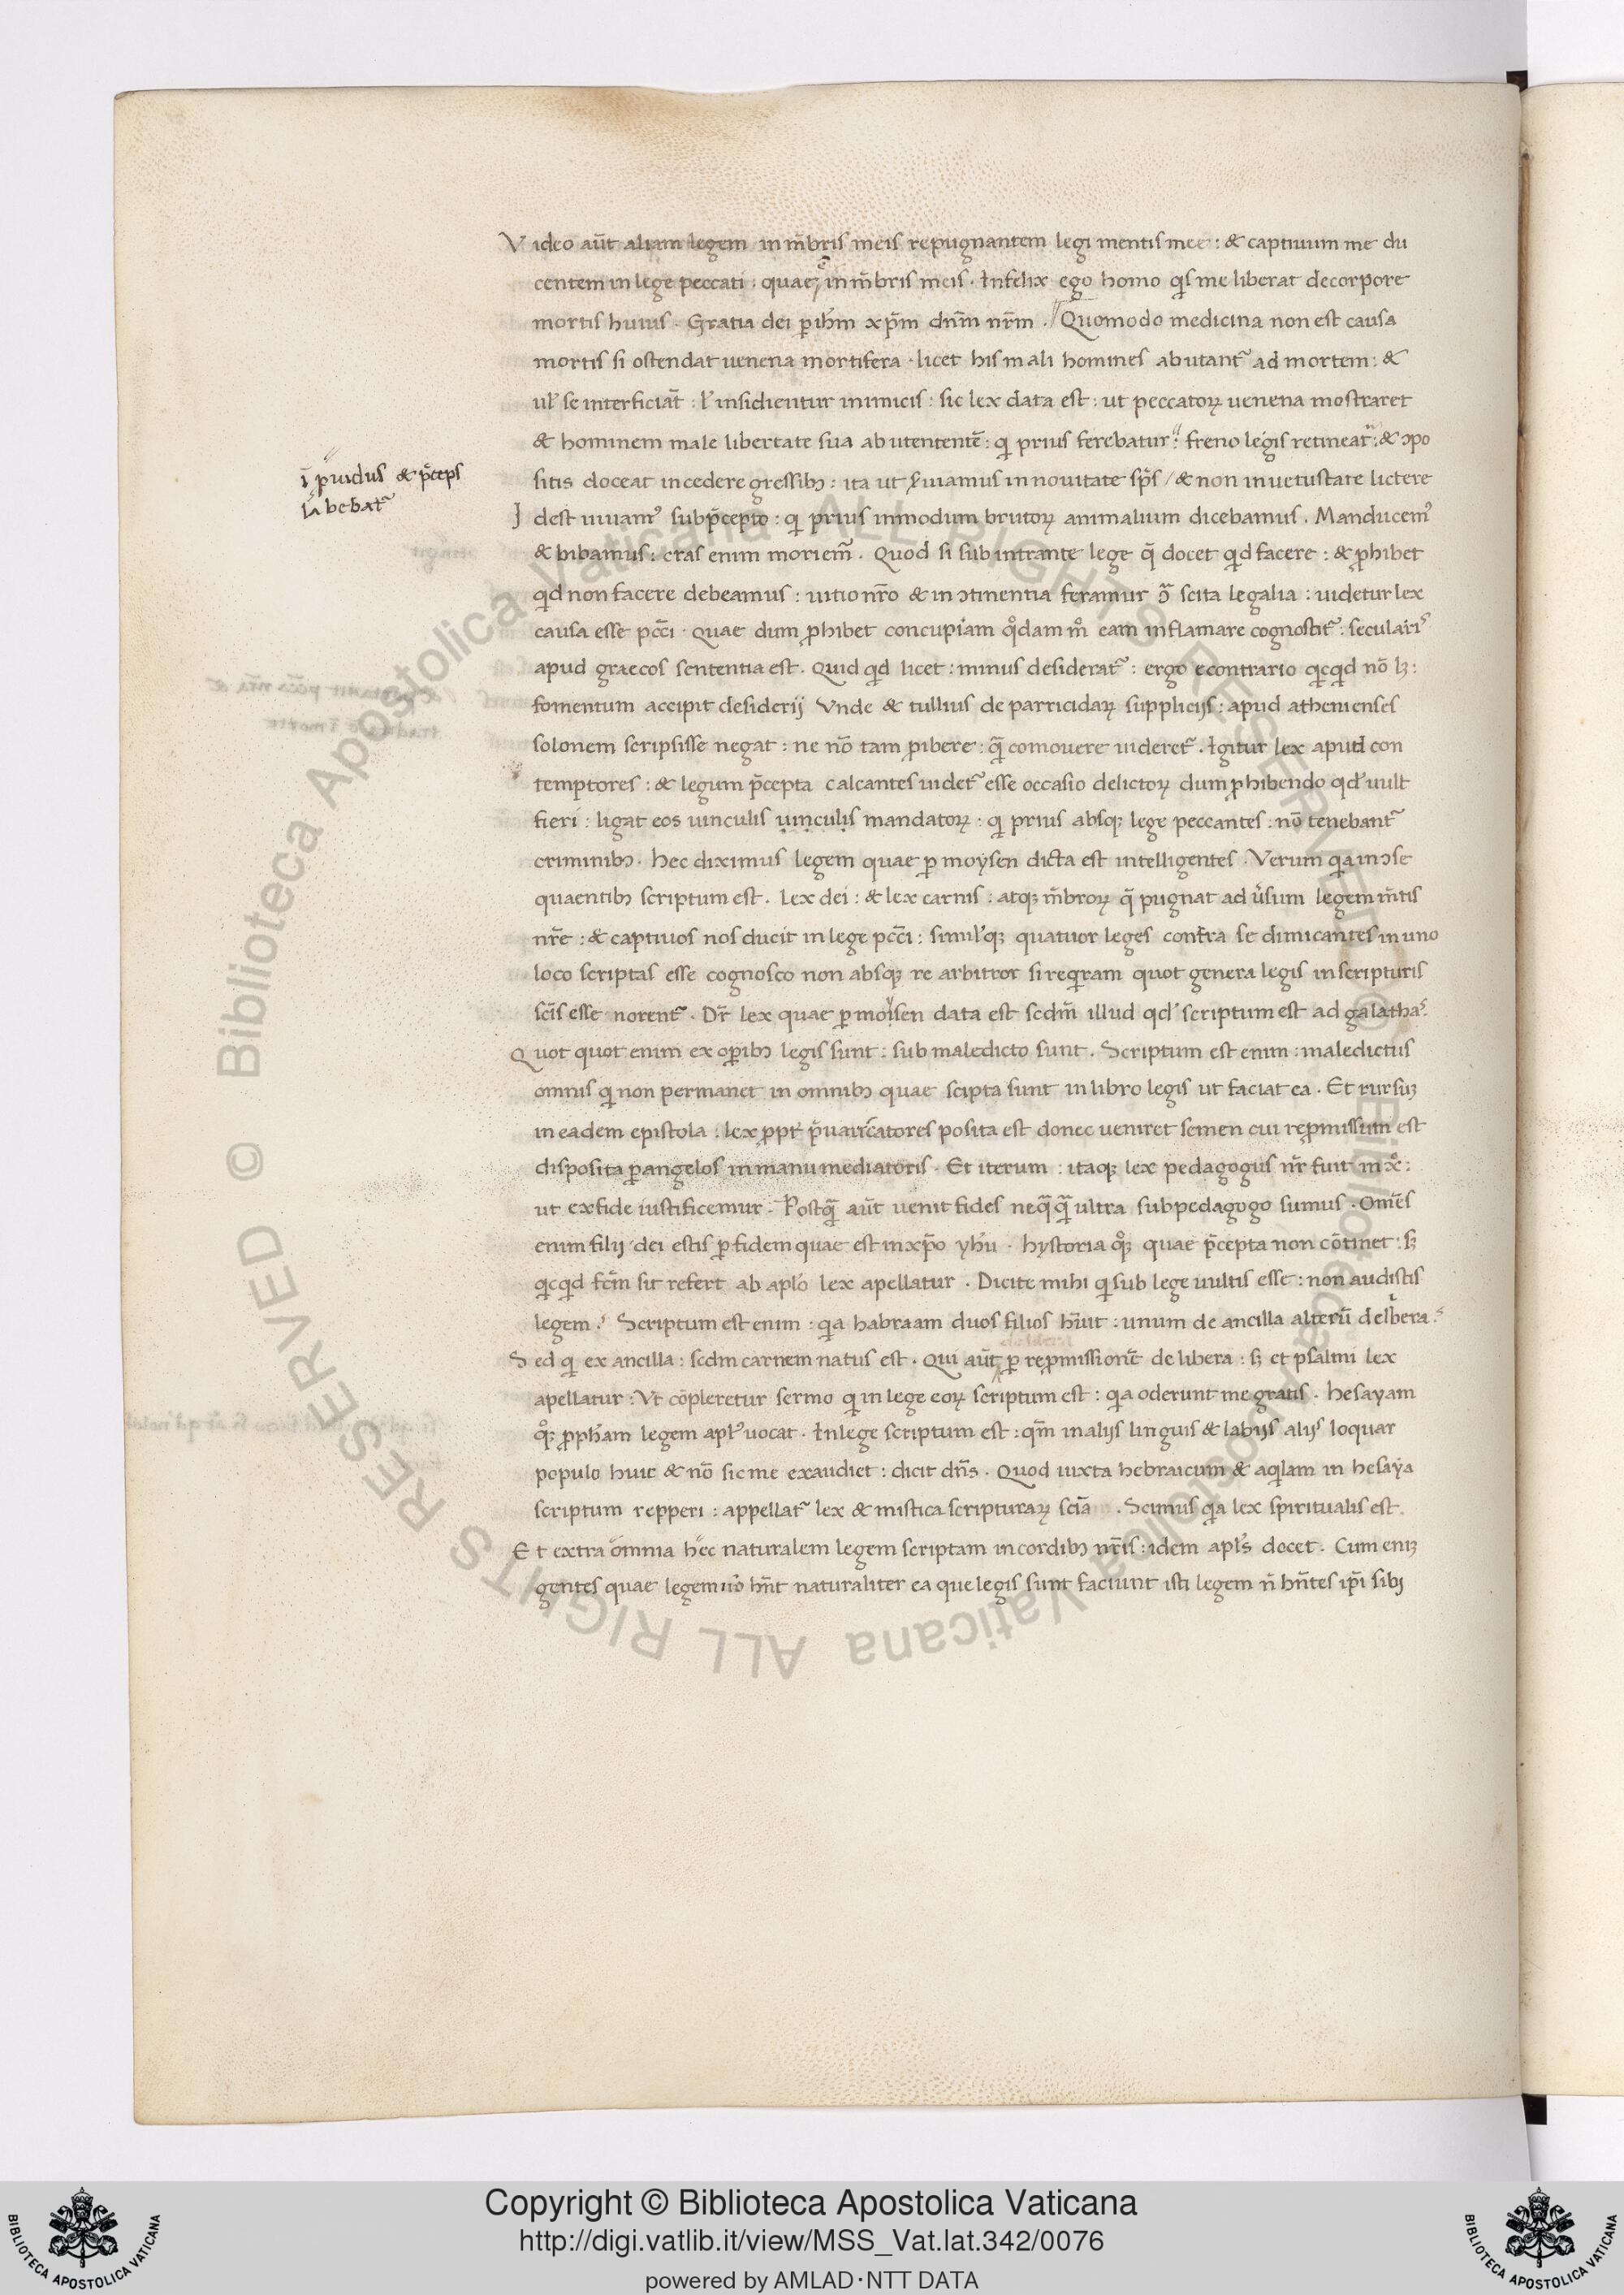 Video aūt aliam legem in m̄bris meis repugnantem legi mentis mee : & captiuum me du
centem in lege peccati : quae ē in m̄bris meis . Infelix ego homo qͥs me liberat de corpore
mortis huius . Gratia dei ꝑ ihm̄ xp̄m dn̄m nr̄m . Quomodo medicina non est causa
mortis si ostendat uenena mortifera . licet his mali homines abutant᷑ ad mortem : &
ul᷑ se interficiāt : l᷑ insidientur inimicis : sic lex data est : ut peccatoꝝ uenena mostraret
& hominem male libertate sua abutententē : qͥ prius ferebatur : freno legis retineat᷑ : & ɔpo
i͞pͥuidus & p̄ceps
labebat᷑
sitis doceat incedere gressibꝫ : ita ut ẜuiamus in nouitate sp̄s / & non in uetustate lictere
Idest uiuamꝰ sub p̄cepto : qͥ prius in modum brutoꝝ animalium dicebamus . Manducemꝰ
& bibamus : cras enim moriem᷑ . Quod si subintrante lege q̄ docet qͥd facere : & ꝓhibet
qͥd non facere debeamus : uitio nr̄o & inɔtinentia feramur ɔͣ scita legalia : uidetur lex
causa esse pcc̄i . quae dum ꝓhibet concupi᷑am qͦdam mͦ eam inflamare cognoscit᷑ : secularis
apud graecos sententia est . Quid qͥd licet : minus desiderat᷑ : ergo econtrario qͥcqͥd nō lꝫ :
fomentum accipit desiderij Vnde & tullius de parricidaꝝ supplicijs : apud athenienses
solonem scripsisse negat : ne nō tam ꝓibere : qͣ̄ comouere uideret᷑ . Igitur lex apud con
temptores : & legum p̄cepta calcantes uidet᷑ esse occasio delictoꝝ dum ꝓhibendo qd᷑ uult
fieri : ligat eos uinculis uinculis mandatoꝝ : qͥ prius absqꝫ lege peccantes . nō tenebant᷑
criminibꝫ . Hec diximus legem quae ꝑ moysen dicta est intelligentes . Verum qͥa in ɔse
quaentibꝫ scriptum est . Lex dei : & lex carnis : atqꝫ m̄broꝝ q̄ pugnat aduͥsum legem m̄tis
nr̄e : & captiuos nos ducit in lege pcc̄i : simul᷑qꝫ quatuor leges contra se dimicantes in uno
loco scriptas esse cognosco non absqꝫ re arbitror si reqͥram quot genera legis in scripturis
sc̄is esse norent᷑ . Dr̄ lex quae ꝑ moysen data est scdm̄ illud qd᷑ scriptum est ad galathas
Quot quot enim ex oꝑibꝫ legis sunt : sub maledicto sunt . Scriptum est enim : maledictus
omnis qͥ non permanet in omnibꝫ quae scipta sunt in libro legis ut faciat ea . Et rursuꝫ
in eadem epistola : lex ꝓpt᷑ p̄uaricatores posita est donec ueniret semen cui reꝓmissum est
disposita ꝑ angelos in manu mediatoris . Et iterum : itaqꝫ lex pedagogus nr̄ fuit in xͦ :
ut ex fide iustificemur . Postqͣ̄ aūt uenit fides neqͣ̄qͣ̄ ultra sub pedagogo sumus . Omēs
enim filij dei estis ꝑ fidem quae est in xp̄o yhū . hystoria qͦqꝫ quae p̄cepta non cōtinet : sꝫ
qͥcqͥd fcm̄ sit refert ab apl᷑o lex apellatur . Dicite mihi qͥ sub lege uultis esse : non audistis
legem . Scriptum est enim : qͥa habraam duos filios hūit : unum de ancilla alterū de libera .
Sed qͥ ex ancilla : scdm carnem natus est . Qui aūt ꝑ reꝓmissionē de libera : sꝫ et psalmi lex
apellatur : Vt cōpleretur sermo qͥ in lege eoꝝ scriptum est : qͥa oderunt me gratis . hesayam
qͦqꝫ ꝓph᷑am legem apl᷑ uocat . In lege scriptum est : qm̄ in alijs linguis & labijs alijs loquar
populo huic & nō sic me exaudiet : dicit dn̄s . Quod iuxta hebraicum & aqͥlam in hesaya
scriptum repperi : appellat᷑ lex & mistica scripturaꝝ sciā . Scimus qͥa lex spiritualis est .
Et extra omnia hec naturalem legem scriptam in cordibꝫ nr̄is : idem apl᷑s docet . Cum eniꝫ
gentes quae legem nō hn̄t naturaliter ea que legis sunt faciunt isti legem n̄ hn̄tes ip̄i sibi
Copyright © Biblioteca Apostolica Vaticana
http://digi.vatlib.it/view/MSS_Vat.lat.342/0076
powered by AMLAD·NTT DATA